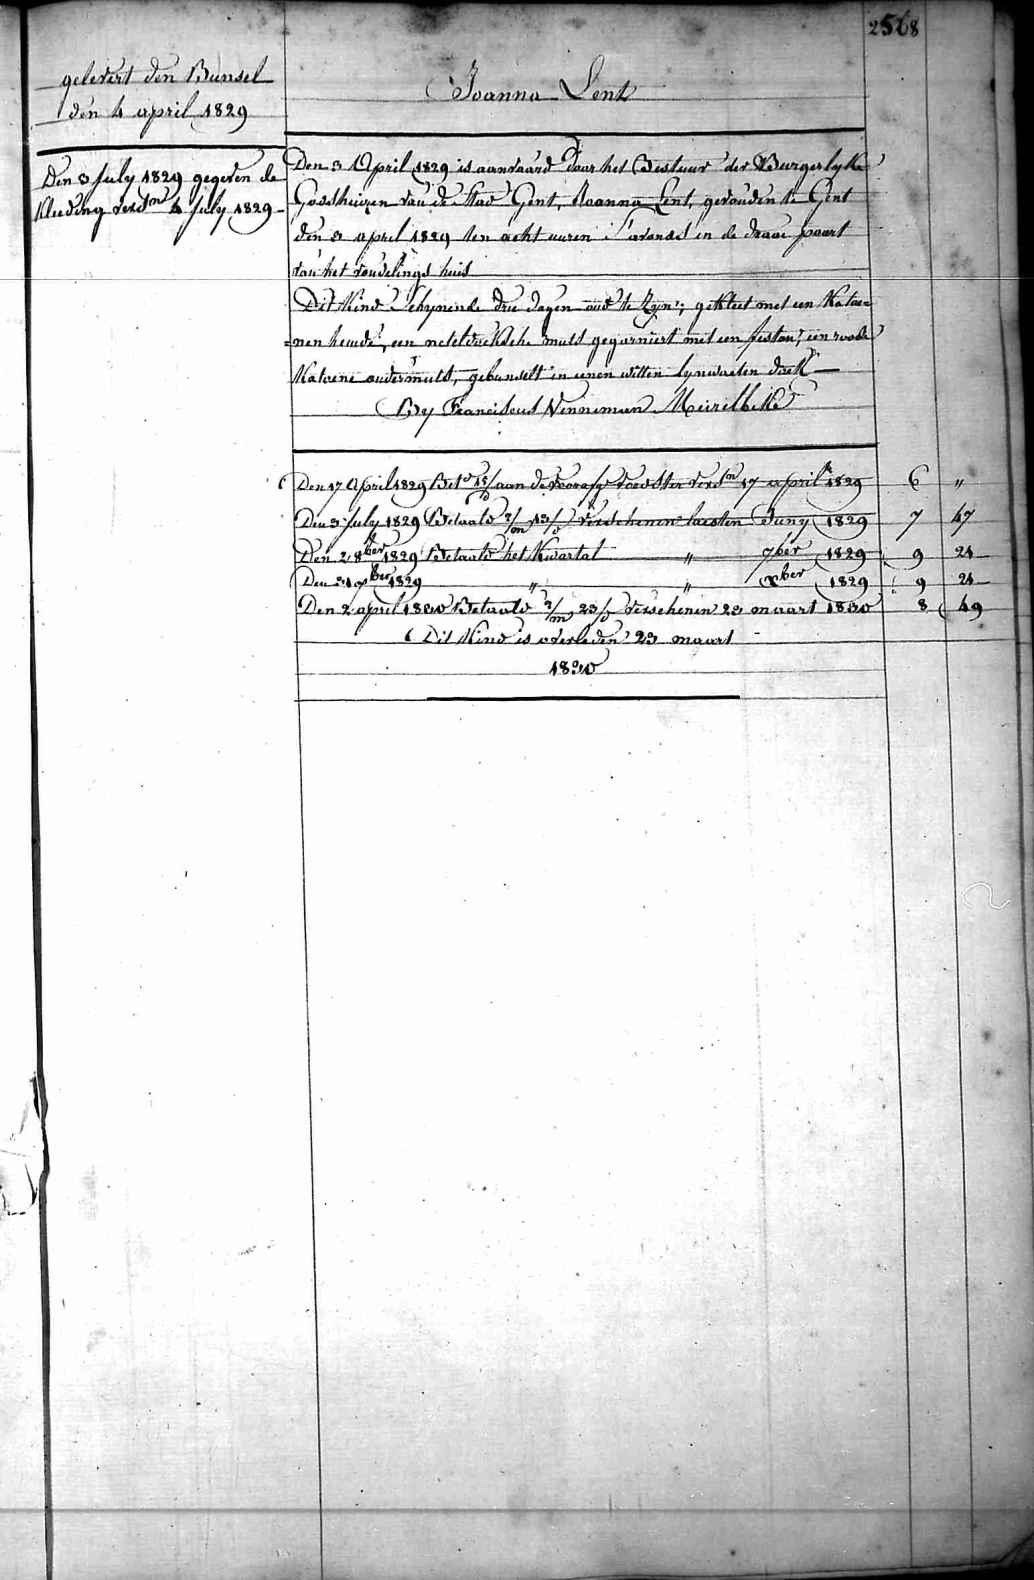 2568
gelevert den Bunsel
den 4 april 1829
Joanna Lent
Den 3 July 1829 gegeven de
kleeding versn 4 July 1829
Den 3 April 1829 is aanvaard door het Bestuur der Burgerlyke
Godshuizen van de Stad Gent, Joanna Lent, gevonden te Gent
den 3 april 1829 ten acht uuren s'avonds in de draai poort
van het vondelings huis
Dit kind schynende drie dagen oud te zyn; gekleet met een katoe=
=nen hemde, een neteldoeksche muts gegarniert met een feston, een roode
katoene ondermuts, gebunselt in eenen witten lynwaeten doek
By Franciscus Vennemen Meirelbeke
Den 17 April 1829 Bet 15/d aan de voorafge voedster versn 17 april 1829 6 "
Den 3 July 1829 Betaald 2/m 13/d verschenen laesten Juny 1829 7 47
Den 2 8ber 1829 Betaald het kwartal " 7ber 1829 9 21
Den 31 xber 1829 " " xber 1829 9 21
Den 2 april 1830 Betaald 2/m 23/d verschenen 23 maart 1830 8 49
Dit kind is overleden 23 maart
1830